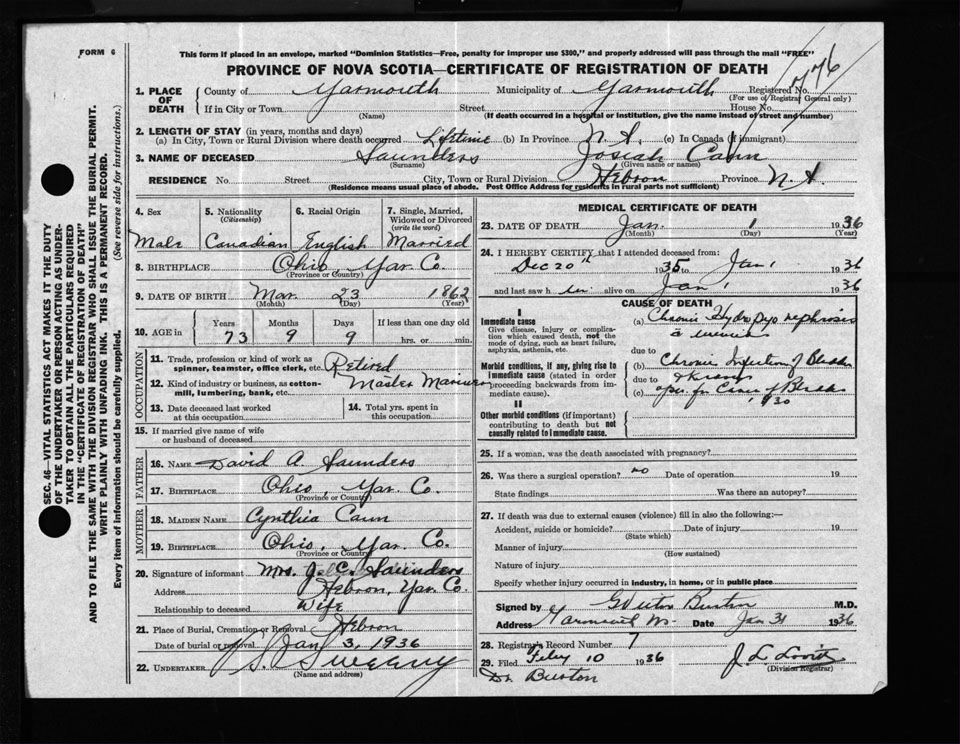 FORM 6
This form if placed in an envelope, marked "Dominion Statistics—Free, penalty for improper use $300," and properly addressed will pass through the mail "FREE"
PROVINCE OF NOVA SCOTIA—CERTIFICATE OF REGISTRATION OF DEATH
1. PLACE OF DEATH County of Yarmouth Municipality of Yarmouth Registered No.
(For use of Registrar General only)
If in City or Town Street House No.
(Name) (If death occurred in a hospital or institution, give the name instead of street and number)
2. LENGTH OF STAY (in years, months and days)
(a) In City, Town or Rural Division where death occurred Lifetime (b) In Province N.S. (c) In Canada (if immigrant)
3. NAME OF DECEASED Saunders Josiah Cann
(Surname) (Given name or names)
RESIDENCE No. Street City, Town or Rural Division Hebron Province N.S.
(Residence means usual place of abode. Post Office Address for residents in rural parts not sufficient)
4. Sex Male
5. Nationality (Citizenship) Canadian
6. Racial Origin English
7. Single, Married, Widowed or Divorced (write the word) Married
8. BIRTHPLACE Ohio, Yar. Co.
(Province or Country)
9. DATE OF BIRTH Mar. 23 1862
(Month) (Day) (Year)
10. AGE in Years 73 Months 9 Days 9 If less than one day old hrs. or min.
OCCUPATION
11. Trade, profession or kind of work as spinner, teamster, office clerk, etc. Retired
12. Kind of industry or business, as cotton-mill, lumbering, bank, etc. Master Mariner
13. Date deceased last worked at this occupation
14. Total yrs. spent in this occupation
15. If married give name of wife or husband of deceased
FATHER
16. NAME David A. Saunders
17. BIRTHPLACE Ohio, Yar. Co.
(Province or Country)
MOTHER
18. MAIDEN NAME Cynthia Cann
19. BIRTHPLACE Ohio, Yar. Co.
(Province or Country)
20. Signature of informant Mrs. J. C. Saunders
Address Hebron, Yar. Co.
Relationship to deceased Wife
21. Place of Burial, Cremation or Removal Hebron
Date of burial or removal Jan 3, 1936
22. UNDERTAKER Sweeny
(Name and address)
MEDICAL CERTIFICATE OF DEATH
23. DATE OF DEATH Jan. 1 1936
(Month) (Day) (Year)
24. I HEREBY CERTIFY that I attended deceased from:
Dec 20th 1935 to Jan 1 1936
and last saw him alive on Jan 1 1936
CAUSE OF DEATH
I
Immediate cause
Give disease, injury or complication which caused death, not the mode of dying, such as heart failure, asphyxia, asthenia, etc.
(a) Chronic Hydro Pyo nephrosis
due to
Morbid conditions, if any, giving rise to immediate cause (stated in order proceeding backwards from immediate cause).
(b) Chronic Infection of Bladder
due to
(c) oper. for Canc of Bladder
1930
II
Other morbid conditions (if important) contributing to death but not causally related to immediate cause.
25. If a woman, was the death associated with pregnancy?
26. Was there a surgical operation? no Date of operation 19
State findings Was there an autopsy?
27. If death was due to external causes (violence) fill in also the following:—
Accident, suicide or homicide? Date of injury 19
(State which)
Manner of injury
(How sustained)
Nature of injury
Specify whether injury occurred in industry, in home, or in public place
Signed by Burton M.D.
Address Yarmouth N.S. Date Jan 31 1936
28. Registrar's Record Number 7
29. Filed Feby 10 1936 J. L. Lovitt
(Division Registrar)
Dr. Burton
SEC. 46—VITAL STATISTICS ACT MAKES IT THE DUTY
OF THE UNDERTAKER OR PERSON ACTING AS UNDER-
TAKER TO OBTAIN ALL THE PARTICULARS REQUIRED
IN THE "CERTIFICATE OF REGISTRATION OF DEATH"
AND TO FILE THE SAME WITH THE DIVISION REGISTRAR WHO SHALL ISSUE THE BURIAL PERMIT.
WRITE PLAINLY WITH UNFADING INK. THIS IS A PERMANENT RECORD.
Every item of information should be carefully supplied. (See reverse side for instructions.)